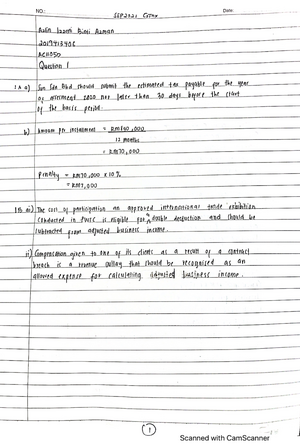 NO.:
Date:
SEP2021
Aulin Izzati Binti Azman
AC4050
Question 1
1 A a) Sun See Bhd should submit the estimated tax payable for the year
of assessment 2020 not later than 30 days before the start
of the basis period.
b) Amount per instalment = RM840,000
12 months
= RM70,000
Penalty = RM70,000 x 10%
= RM7,000
The cost of participation an approved international trade exhibition
conducted in Paris is eligible for a double deduction and should be
subtracted from adjusted business income.
ii) Compensation given to one of its clients as a result of a contract
breach is a revenue outlay that should be recognised as an
allowed expense for calculating adjusted business income.
1
Scanned with CamScanner